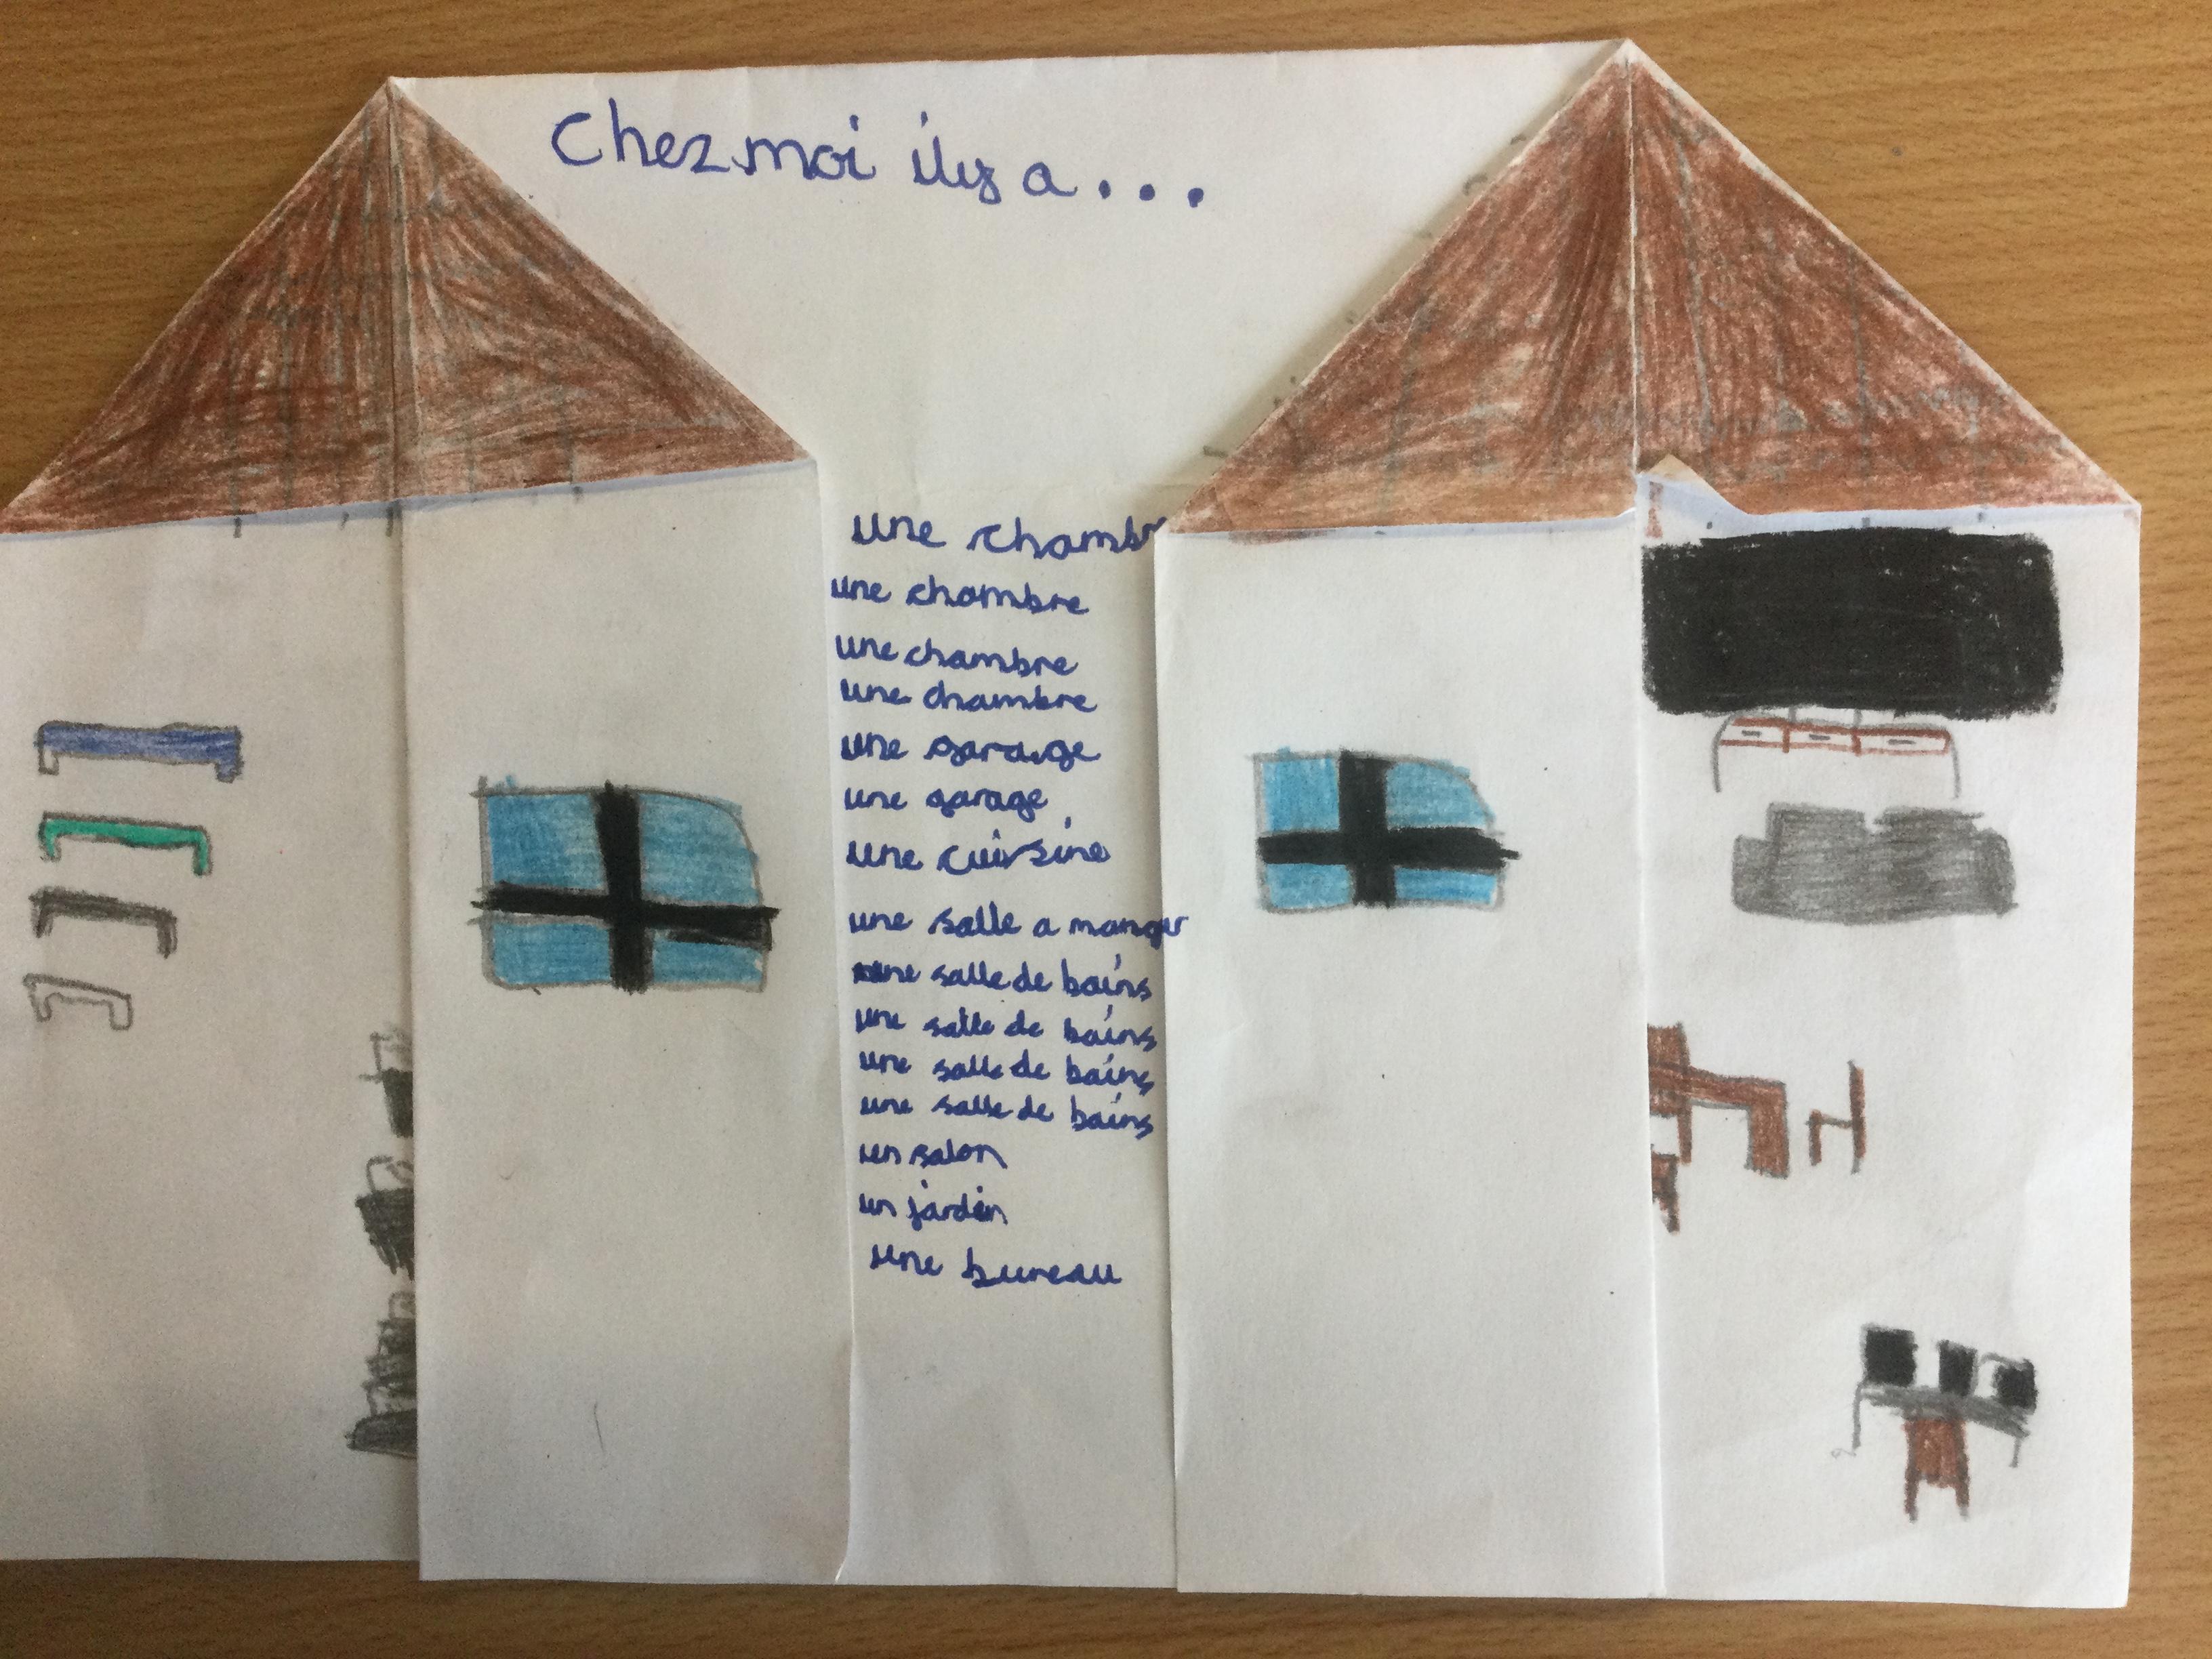 Chez moi il y a...
une chambr
une chambre
une chambre
une chambre
une garage
une garage
une cuisine
une salle a manger
une salle de bains
une salle de bains
une salle de bains
une salle de bains
un salon
un jardin
une bureau